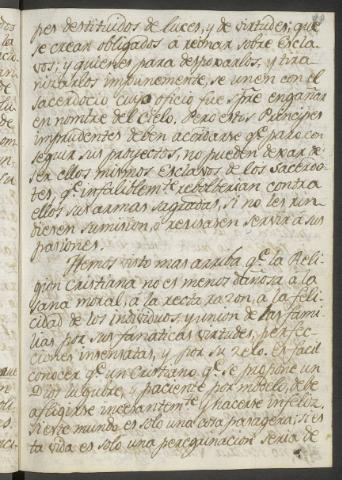 pes destituidos de luces, y de virtudes, que
se crean obligados á reinar sobre Escla-
vos; y quienes para despojarlos, y tira-
nizarlos impunemente, se unen con el
Sacerdocio cuyo oficio fue spre engañar
en nombre del Cielo. Pero estos Principes
imprudentes deben acordarse qe para con-
seguir sus proyectos, no pueden dexar de
ser ellos mismos Esclavos de los Sacerdo-
tes, qe infaliblemte rebolberian contra
ellos sus armas sagradas, si no les rin-
diesen sumision, o reusasen servir á sus
pasiones.
Hemos visto mas arriba qe la Reli-
gion Cristiana no es menos dañosa á la
sana moral, á la recta razon, á la feli-
cidad de los individuos, y union de las fami-
lias por sus fanaticas virtudes, perfec-
ciones insensatas, y por su zelo. Es facil
conocer qe un Cristiano qe se propone un
Dios lugubre, y paciente por modelo, debe
afligirse incesantemte y hacerse infeliz.
Si este mundo es solo una cosa pasagera; si es-
ta vida es solo una peregrinacion seria de